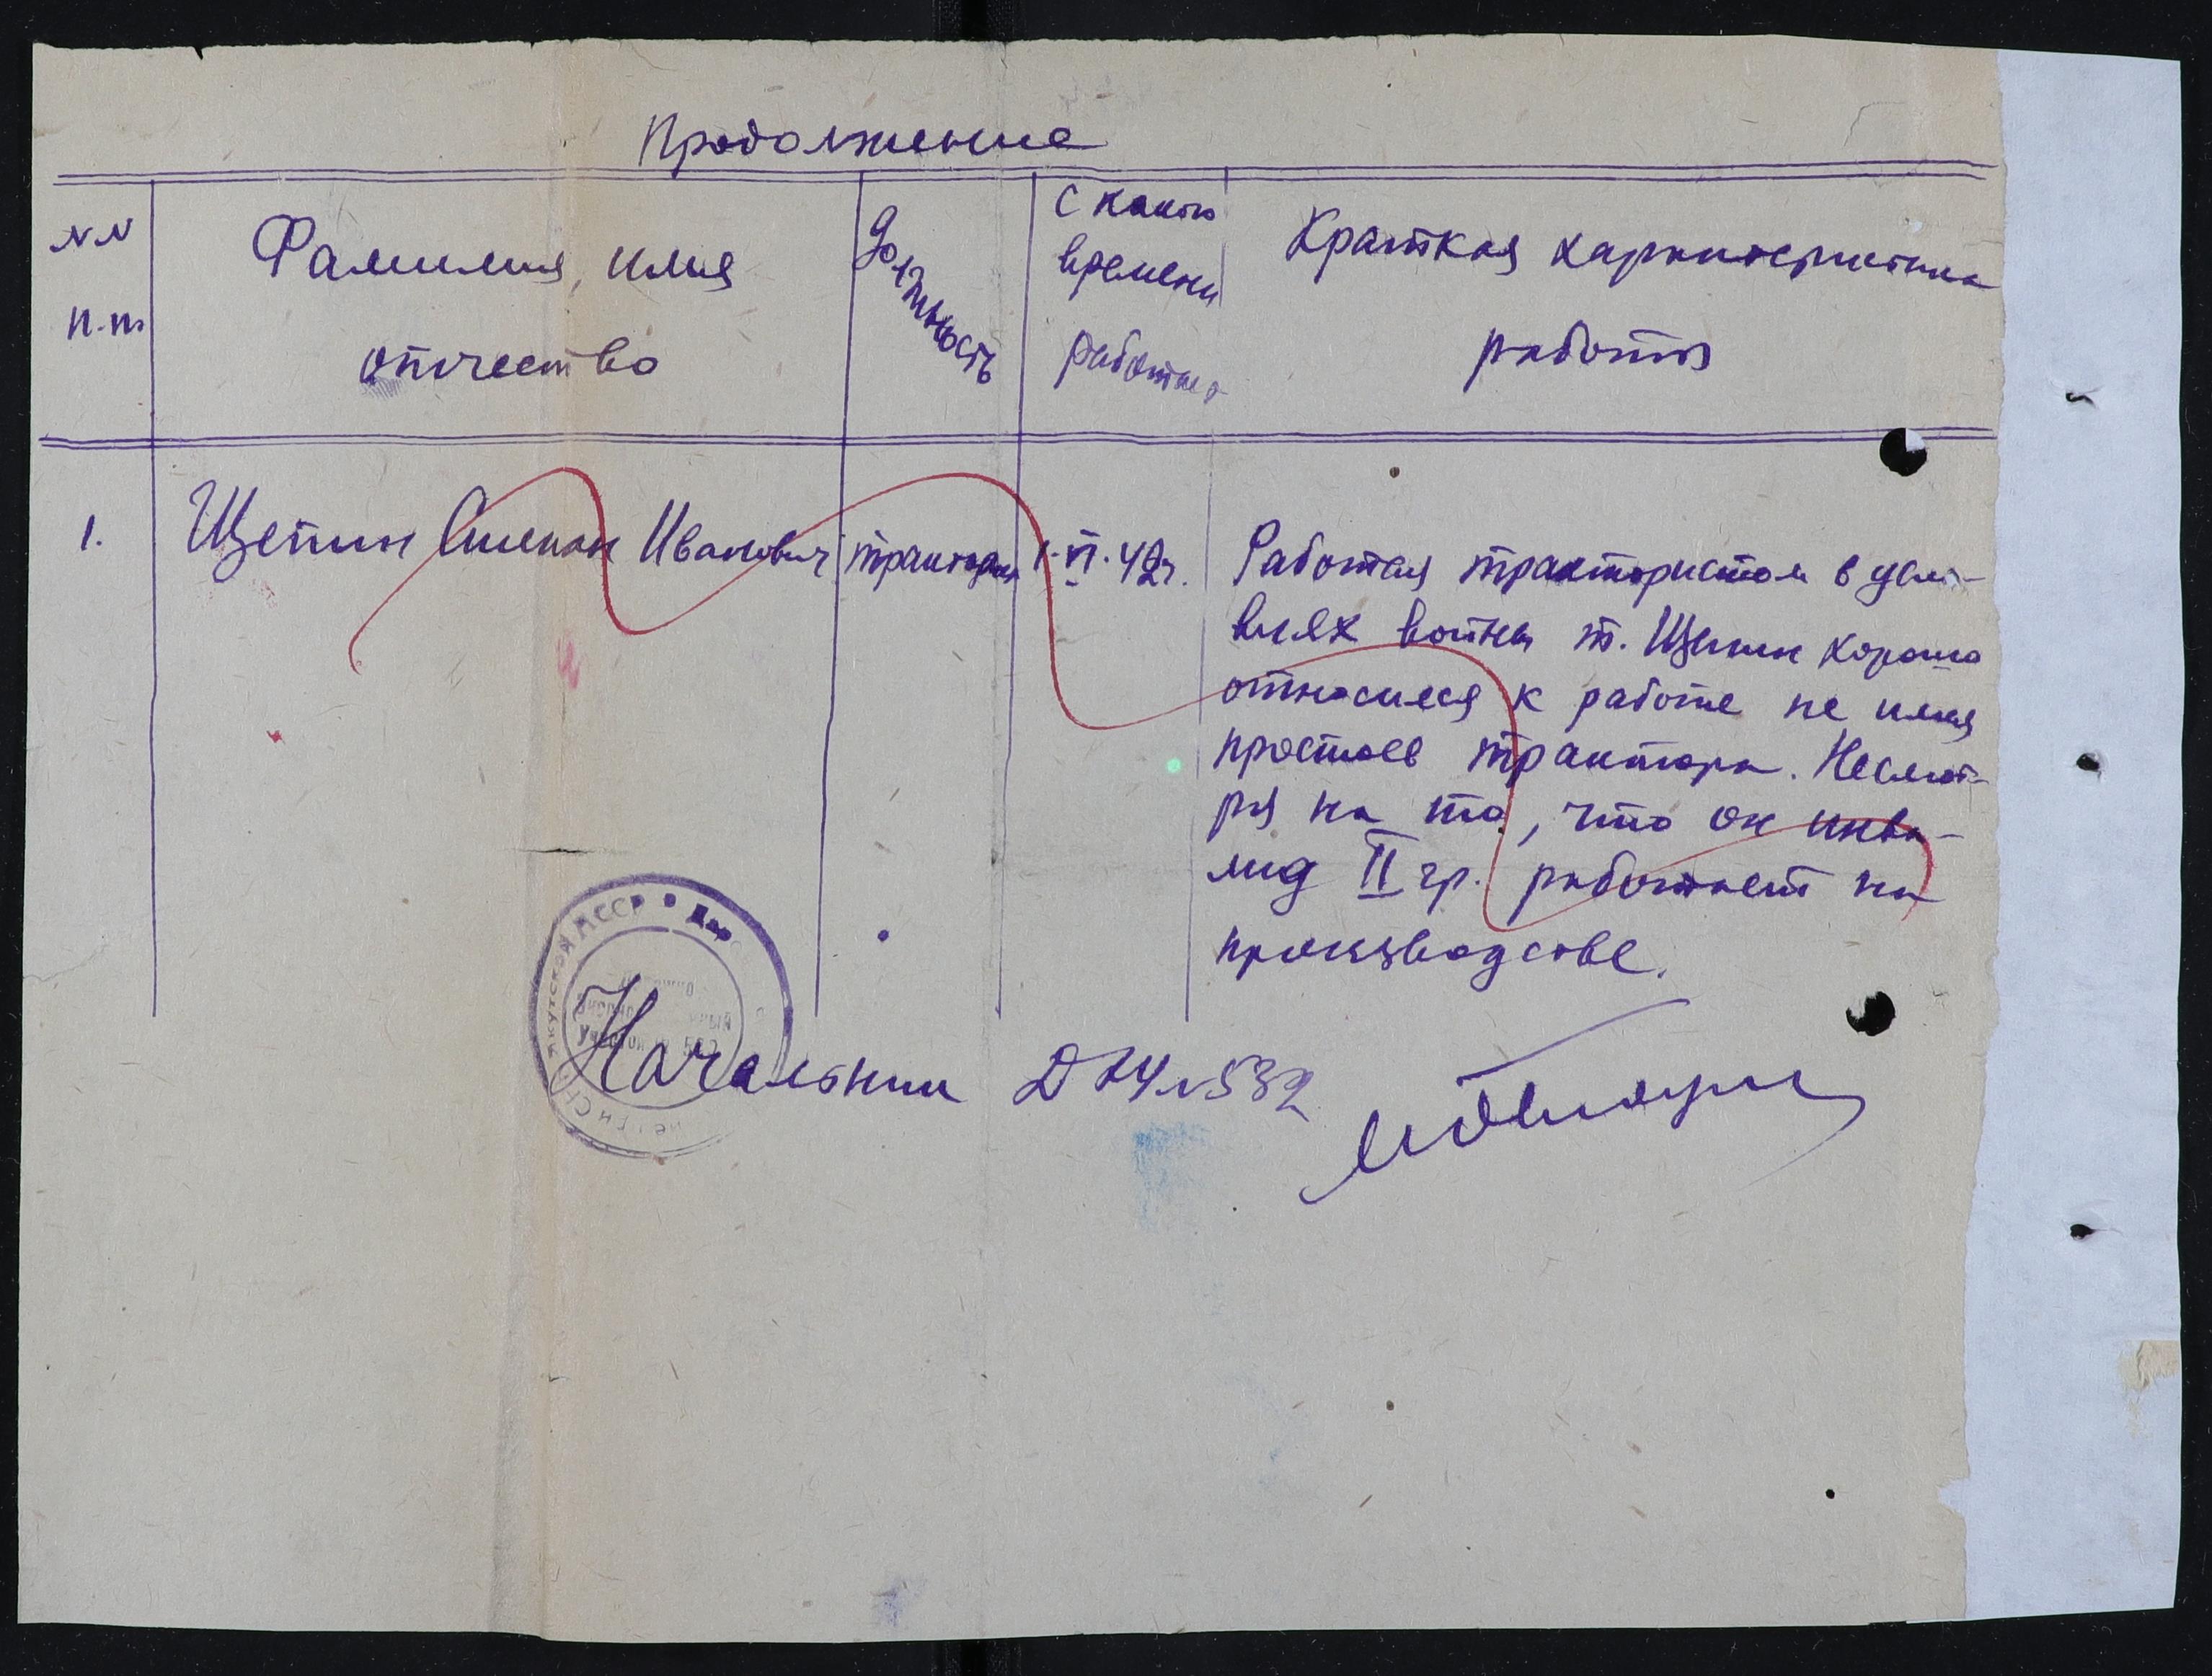 Продолжение
NN п.п.
Фамилия, имя отчество
Должность
С какого времени работает
Краткая характеристика работы
1.
Щепин Степан Иванович
тракторист
1.VI.42г.
Работая трактористом в усло-
виях войны т. Щепин хорошо
относился к работе не имея
простоев трактора. Несмот-
ря на то, что он инва-
лид II гр. работает на
производстве.
Якутской АССР
Начальник ДЭУ N 532